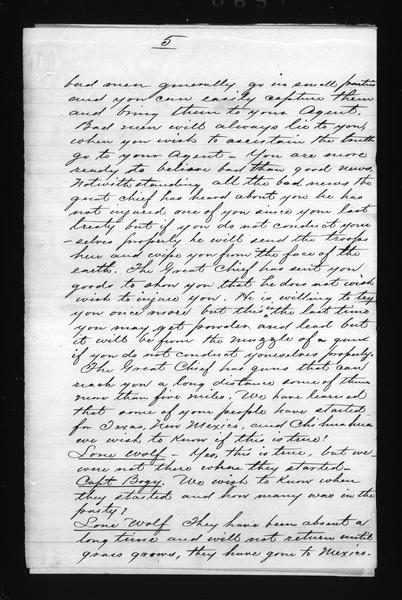 5
bad men generally go in small parties
and you can easily capture them
and bring them to your Agent.
Bad men will always lie to you
when you wish to ascertain the truth
go to your Agent - You are more
ready to believe bad than good news.
Notwithstanding all the bad news the
great chief has heard about you he has
not injured one of you since your last
treaty but if you do not conduct your
-selves properly he will send the troops
here and wipe you from the face of the
earth. The Great Chief has sent you
goods to show you that he does not wish
wish to injure you. He is willing to try
you once more but this the last time
you may get powder and lead but
it will be from the muzzle of a gun
if you do not conduct yourselves properly.
The Great Chief has guns that can
reach you a long distance some of them
more than five miles. We have learned
that some of your people have started
for Texas, New Mexico, and Chihuahua
we wish to know if this is true!
Lone Wolf - Yes, this is true, but we
were not there when they started -
Capt Bogy. We wish to know when
they started and how many was in the
party?
Lone Wolf They have been absent a
long time and will not return until
grass grows, they have gone to Mexico.